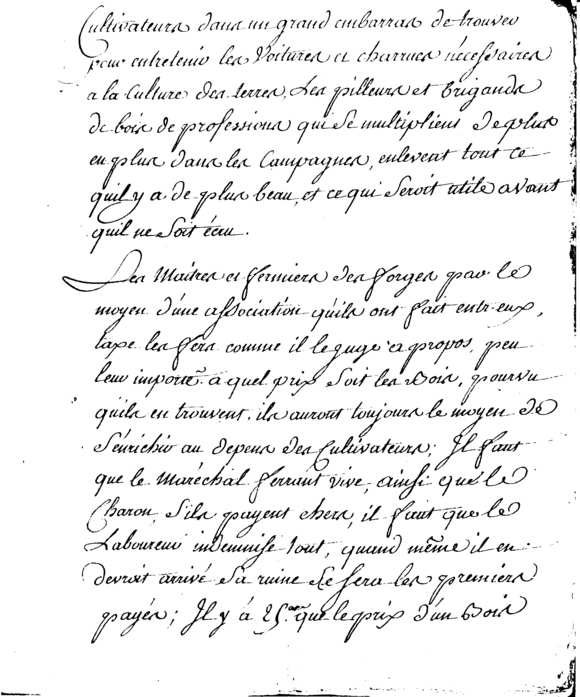 Cultivateurs dans un grand embarras de trouver
pour entretenir les Voitures et charrues nécessaires
a la Culture des terres, Les pilleurs et Brigands
de bois de professions qui se multiplient de plus
en plus dans les Campagnes, enlevent tout ce
quil y a de plus beau, et ce qui seroit utile avant
quil ne soit écru.
Les Maitres et fermiers des forges par le
moyen d'une association qu'ils ont fait entr'eux,
taxe les fers comme il le guge a propos, peu
leur importe a quel prix soit les Bois, pourvu
qu'ils en trouvent, ils auront toujours le moyen de
s'enrichir au depens des Cultivateurs; Il faut
que le Maréchal ferrant vive, ainsi que le
Charon, s'ils payent chers, il faut que le
Laboureur indemnise tout, quand même il en
devroit arrivé sa ruine Se sera les premiers
payés; Il y à 25. ans que le prix d'un Bois